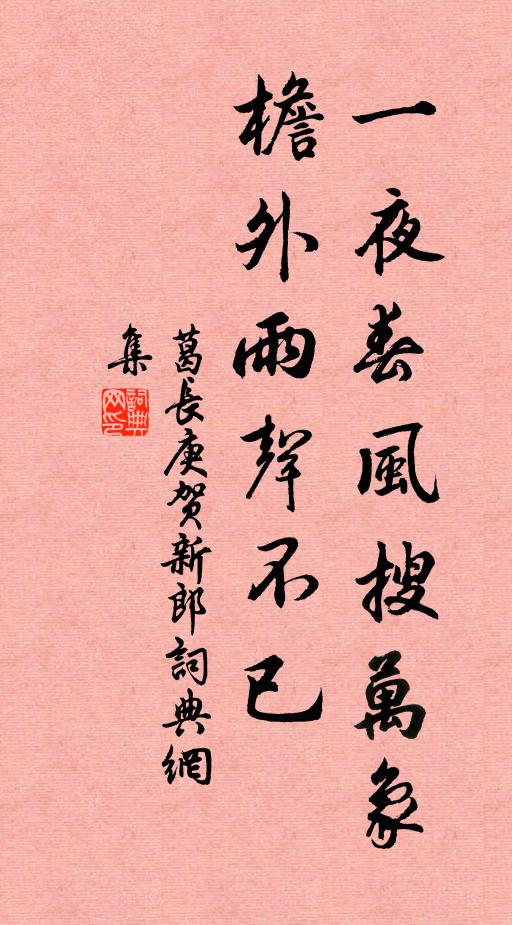 一夜春風搜萬象
檐外雨聲不已
葛長庚賀新郎詞典網
集
詞典
网印